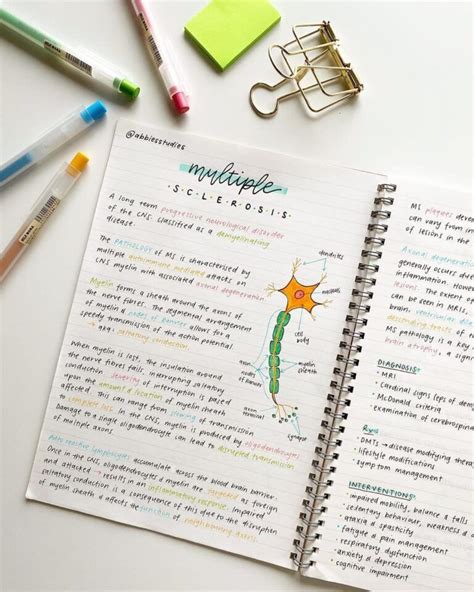 @abbiesstudies
multiple
SCLEROSIS
A long term progressive neurological disorder
of the CNS. Classified as a demyelinating
disease.
The PATHOLOGY of MS is characterised by
multiple autoimmune mediated attacks on
CNS myelin with associated axonal degeneration
Myelin forms a sheath around the axons of
the nerve fibres. The segmental arrangement
of myelin & nodes of Ranvier allows for a
speedy transmission of the action potential
→ aka. saltatory conduction
When myelin is lost, the insulation around
the nerve fibres fails, interrupting saltatory
conduction. Severity of interruption is based
upon the amount & location of myelin sheath
affected. This can range from slowing of transmission
to complete loss. In the CNS, myelin is produced by oligodendrocytes
Damage to a single oligodendrocyte can lead to disrupted transmission
of multiple axons.
Auto reactive lymphocytes accumulate across the blood brain barrier.
Once in the CNS, oligodendrocytes & myelin are targeted as foreign
and attacked → results in an inflammatory response. Impaired
saltatory conduction is a consequence of this due to the disruption
of myelin sheath & affects the function of neighbouring axons.
dendrites
nucleus
cell
body
axon
nodes
of Ranvier
myelin
sheath
axon
terminal
synapse
MS plaques
can vary from
of lesions in the
Axonal degeneration
generally occurs
inflammation. How
lesions. The
can be seen in MRIs.
Ventricular
descending tracts of
MS pathology is a key
brain atrophy, a sign
DIAGNOSIS
• MRI
• Cardinal signs (eps of dem
• McDonald criteria
• examination of cerebrospin
Rx's
• DMTs → disease modifying them
• lifestyle modifications
• symptom management
INTERVENTIONS
• impaired mobility, balance &
• sedentary behaviour, weakness & d
• ataxia & spasticity
• fatigue & pain
• respiratory dysfunction
• anxiety & depression
• cognitive impairment